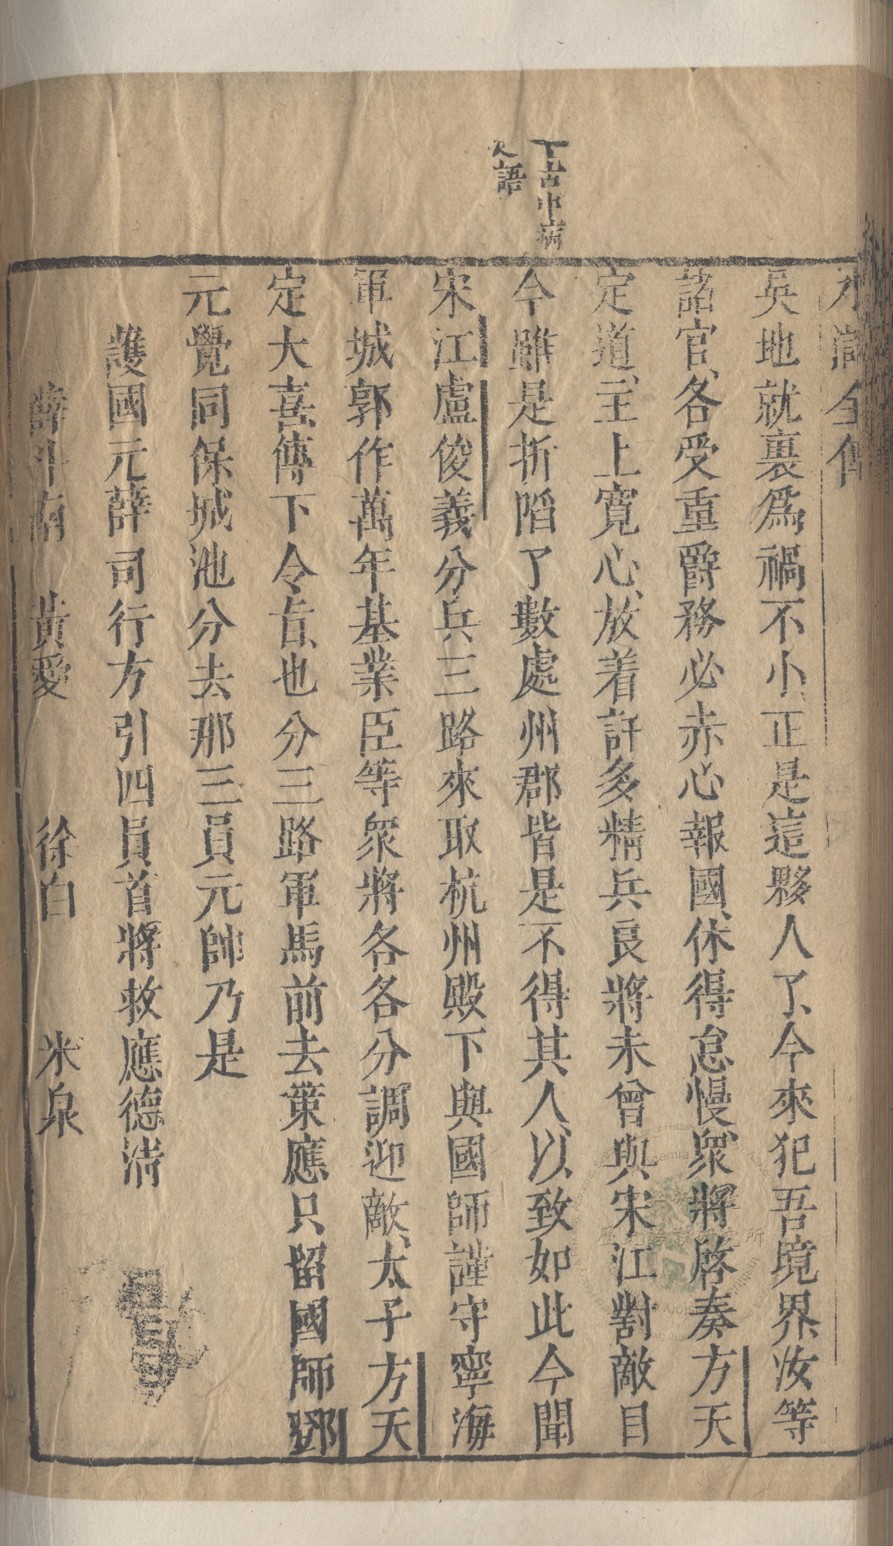 水滸全傳
吳地就裏爲禍不小、正是這夥人了、今來犯吾境界汝等
諸官、各受重爵務必赤心報國、休得怠慢、衆將啓奏方天
定道、主上寬心、放着許多精兵良將未曾與宋江對敵目
今雖是折陷了數處州郡皆是不得其人、以致如此今聞
宋江盧俊義分兵三路來取杭州殿下與國師謹守寧海
軍城郭作萬年基業臣等衆將各各分調迎敵、太子方天
定大喜、傳下令旨、也分三路軍馬前去策應只留國師鄧
元覺同保城池分去那三員元帥乃是
護國元薛司行方引四員首將救應德清
薛斗南 黃愛 徐白 米泉
古中病
語